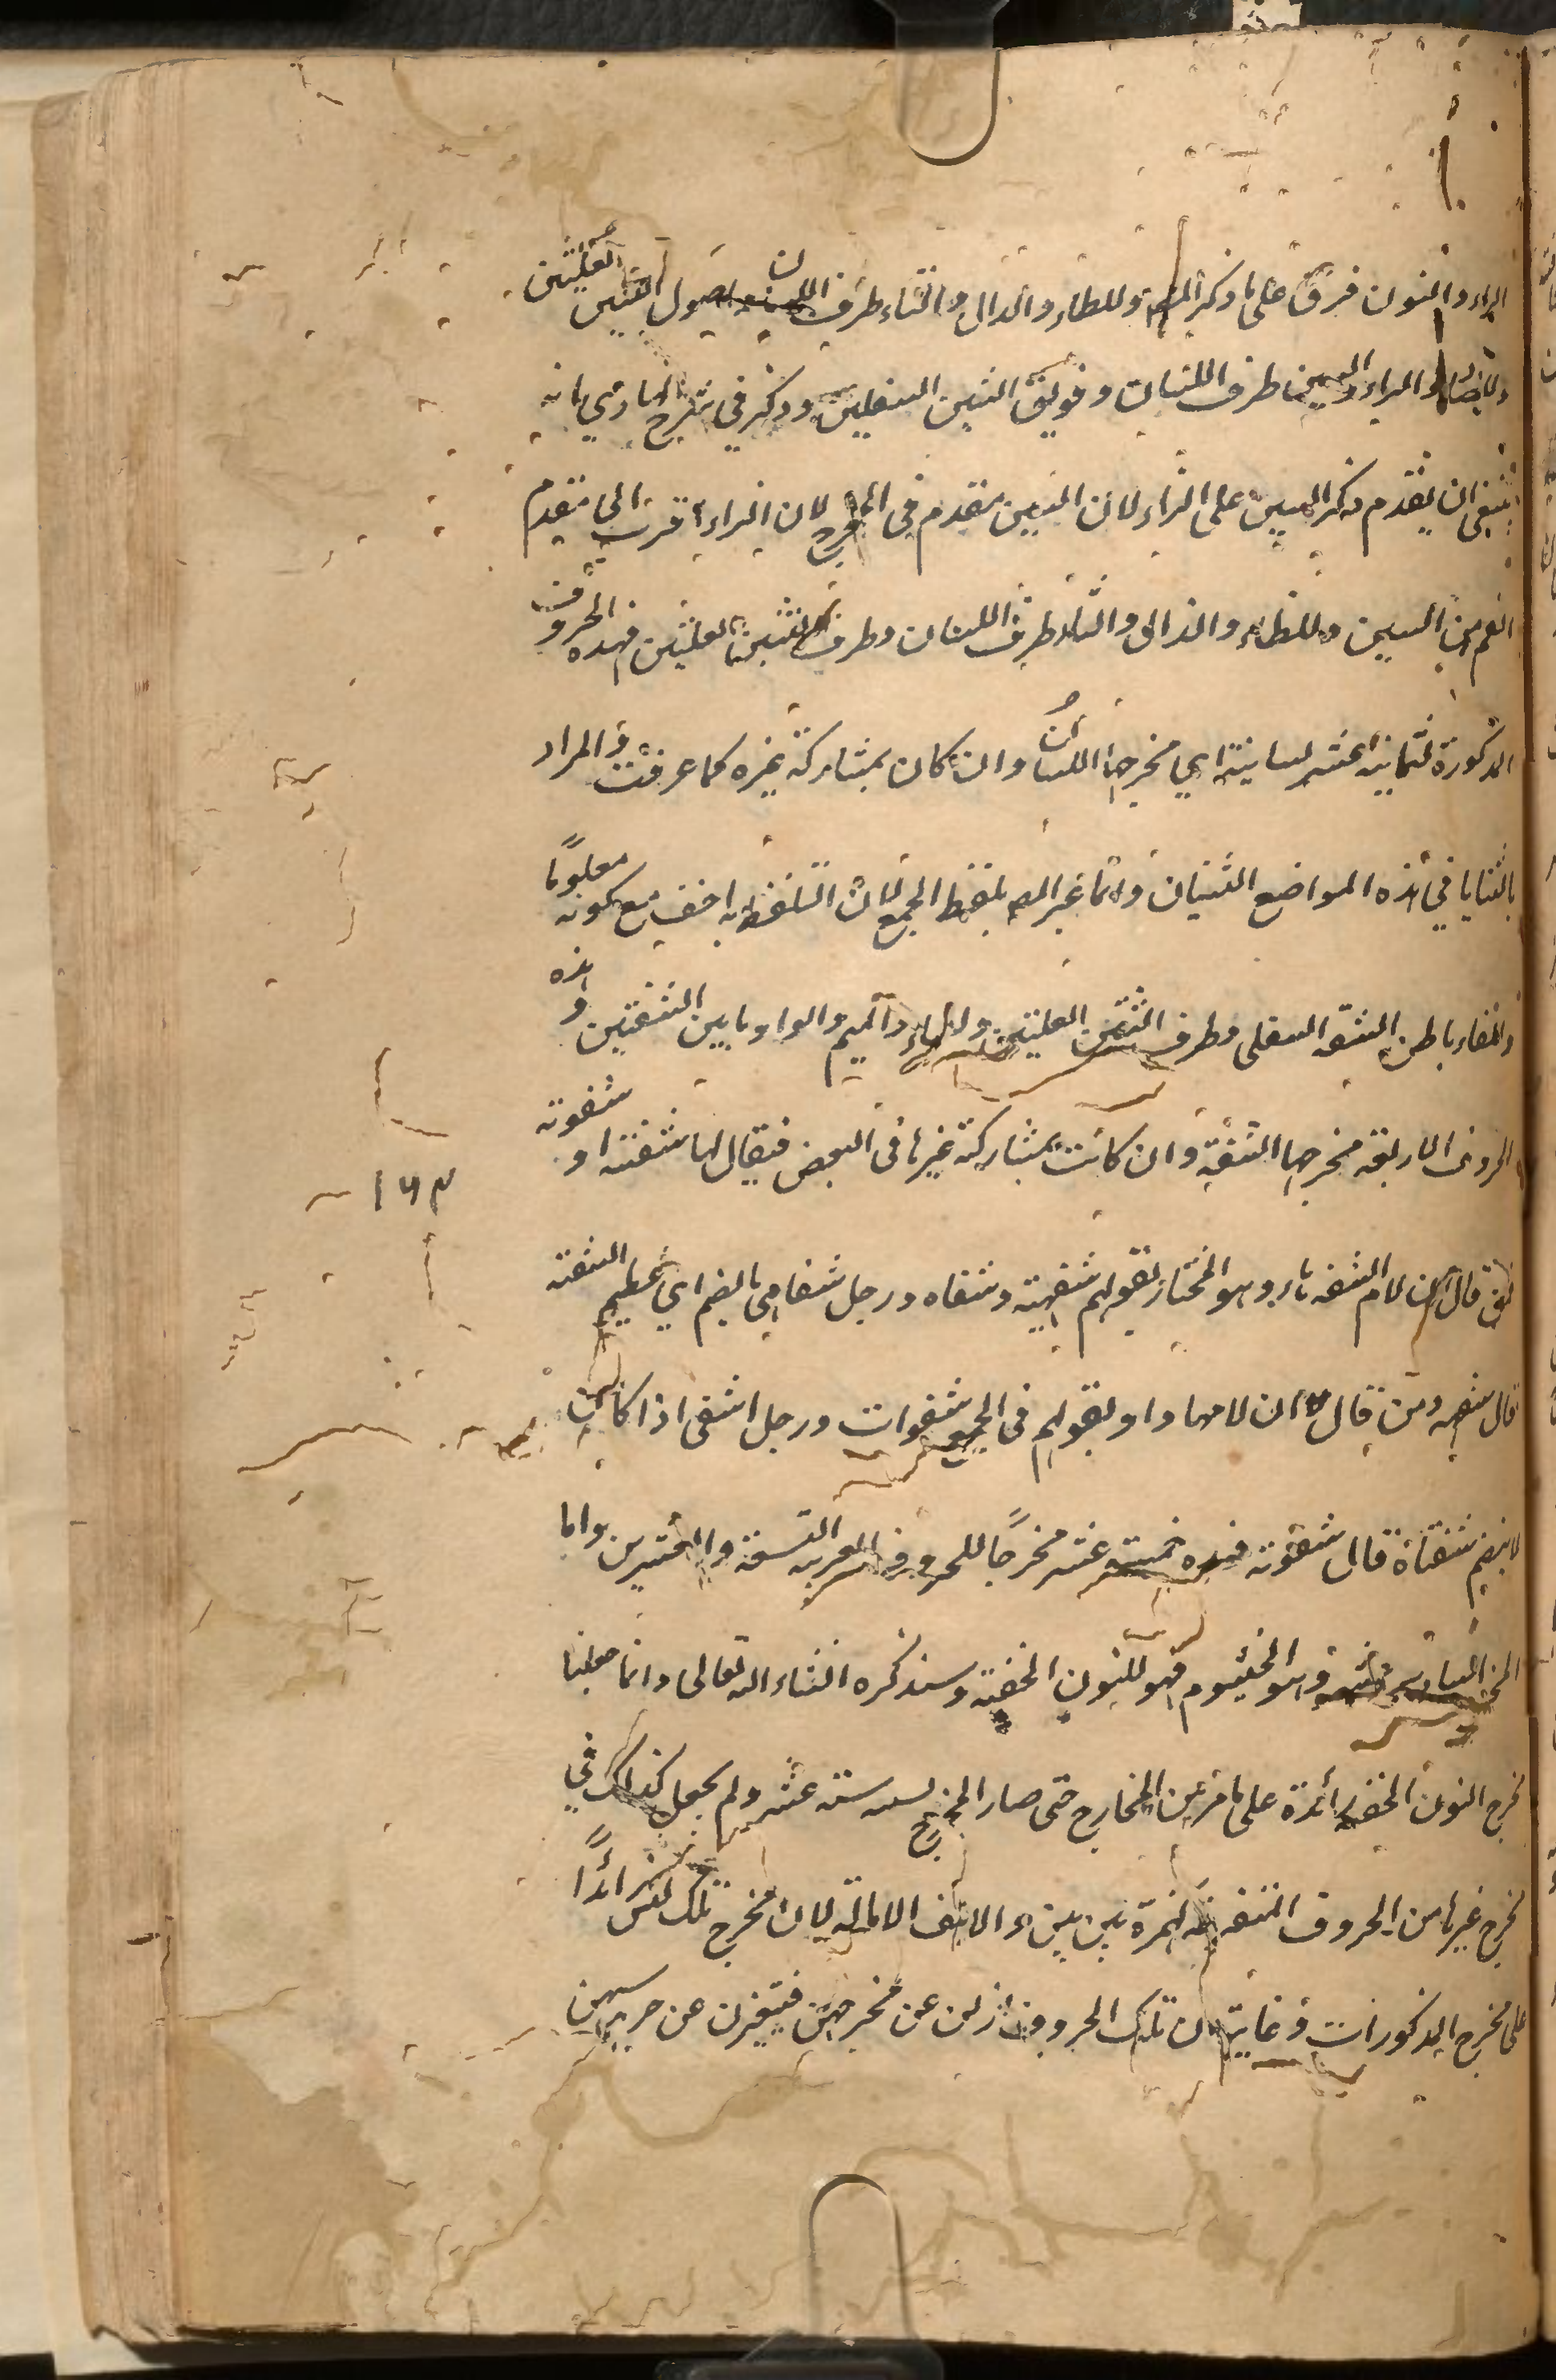 الراء والنون فرق على ما ذكر المص وللطاء والدال والتاء طرف اللسان واصول الثنيتين العليتين
وللصاد والزاء والسين طرف اللسان وفويق الثنيين السفليين وذكر في شرح الهادي انه
ينبغي ان يقدم ذكر السين على الزاء لان السين مقدم في المخرج لان الزاء اقرب الى مقدم
الفم من السين وللظاء والذال والثاء طرف اللسان وطرف الثنيتين العليتين فهذه الحروف
المذكورة ثمانية عشر لسانية اي مخرجها اللسان وان كان بمشاركة غيره كما عرفت والمراد
بالثنايا في هذه المواضع الثنيتان وانما عبر المص بلفظ الجمع لان التلفظ به اخف مع كونه معلوما
وللفاء باطن الشفة السفلى وطرف الثنيتين العليتين وللباء والميم والواو ما بين الشفتين وهذه
الحروف الاربعة مخرجها الشفة وان كانت بمشاركة غيرها في البعض فيقال لها شفهية او شفوية
فمن قال ان لام الشفة هاء وهو المختار لقولهم شفيهة وشفاه ورجل شفاهي بالضم اي عظيم الشفة
قال شفهية ومن قال ان لامها واو لقولهم في الجمع شفوات ورجل اشفى اذا كان
لا ينضم شفتاه قال شفوية فهذه خمسة عشر مخرجًا للحروف العربية التسعة والعشرين واما
المخرج السادس عشر وهو الخيشوم فهو للنون الخفية وسنذكره ان شاء الله تعالى وانما جعلنا
مخرج النون الخفية زائدة على ما مر من المخارج حتى صار المخرج ستة عشر ولم يجعل كذلك في
مخرج غيرها من الحروف المتفرعة كهمزة بين بين والالف الامالة لان مخرج تلك ليس زائدًا
على مخرج المذكورات وغايته ان تلك الحروف ازلن عن مخرجهن فتغيرن عن جرسهن
١٦٣